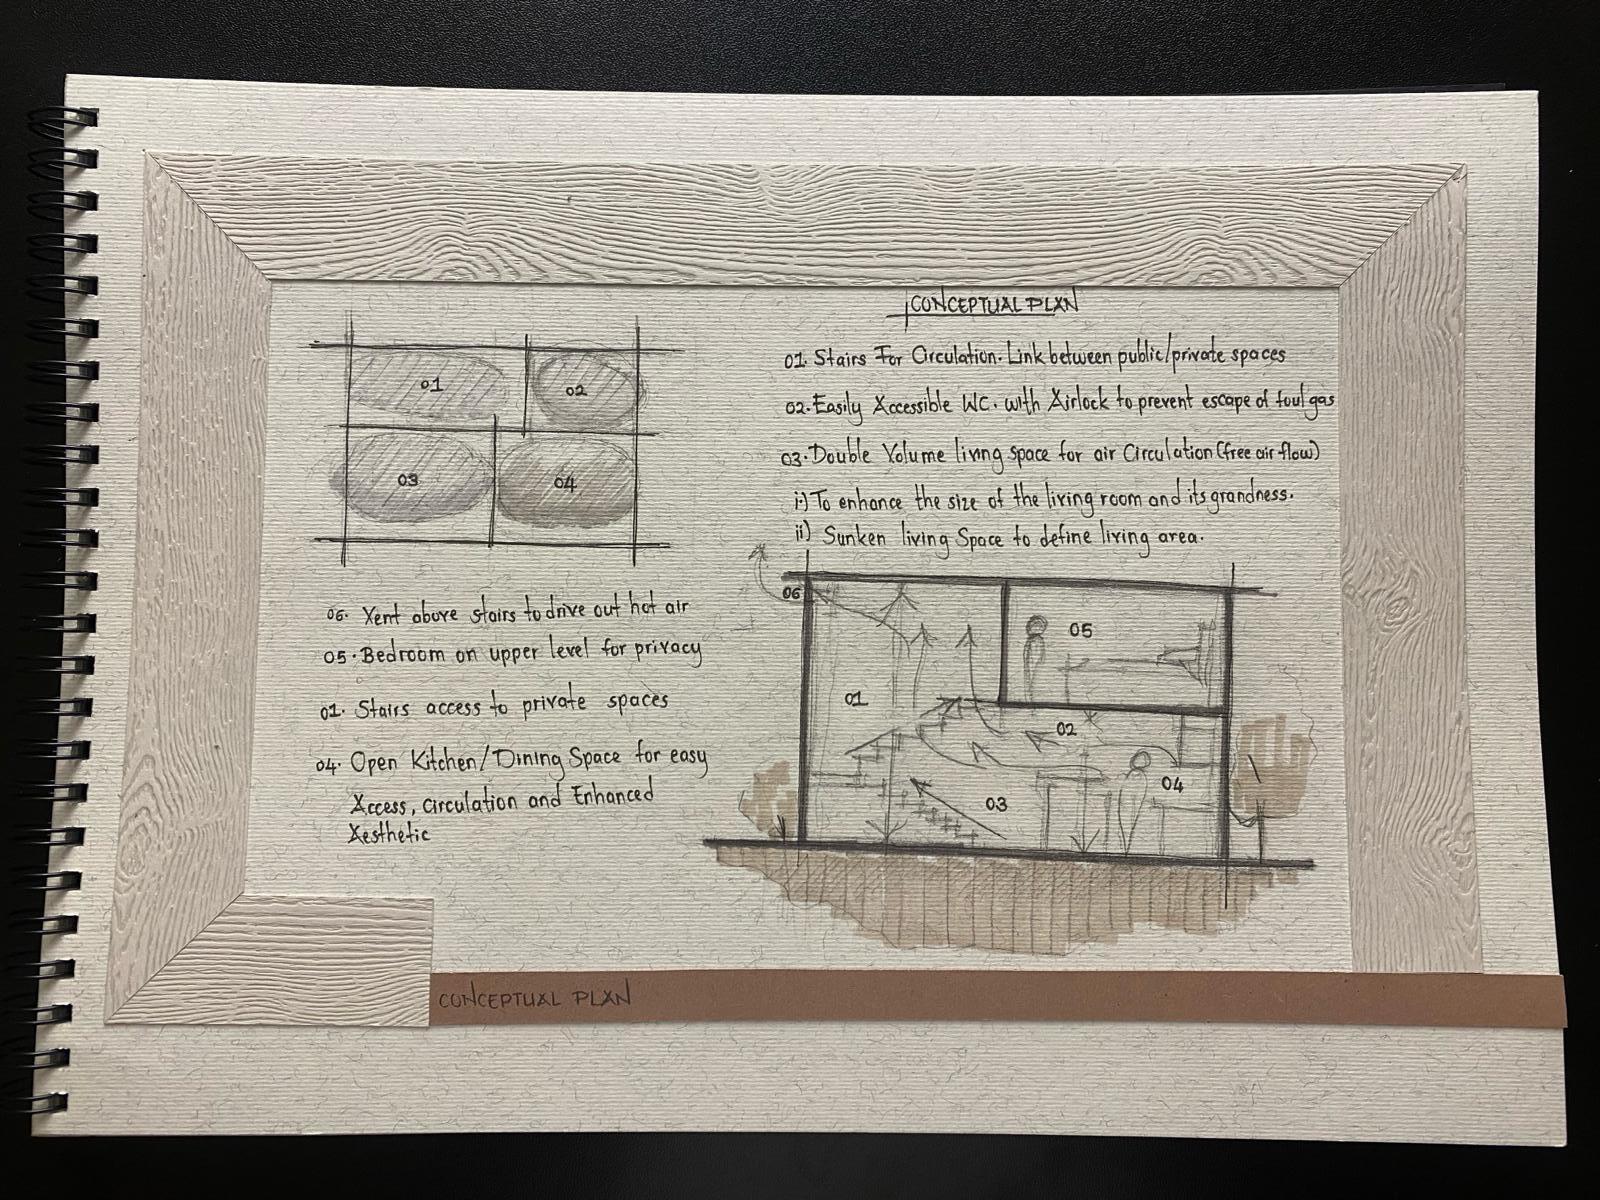 CONCEPTUAL PLAN
01. Stairs For Circulation. Link between public/private spaces
02. Easily Accessible WC. with Airlock to prevent escape of foul gas
03. Double Volume living space for air Circulation (free air flow)
i) To enhance the size of the living room and its grandness.
ii) Sunken living Space to define living area.
01
02
03
04
06. Vent above stairs to drive out hot air
05. Bedroom on upper level for privacy
01. Stairs access to private spaces
04. Open Kitchen/Dining Space for easy
Access, circulation and Enhanced
Aesthetic
06
05
01
02
04
03
CONCEPTUAL PLAN